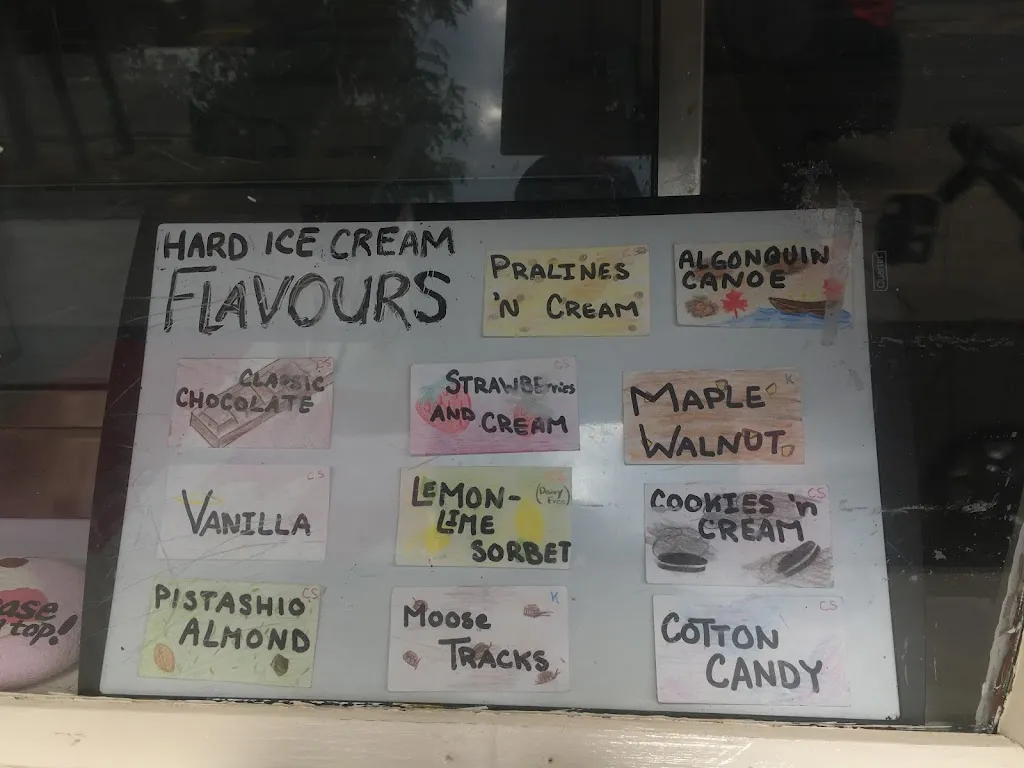 HARD ICE CREAM
FLAVOURS
PRALINES
'N CREAM
CS
ALGONQUIN
CANOE
CLASSIC
CHOCOLATE
CS
STRAWBErries
AND CREAM
CS
MAPLE
WALNUT
K
VANILLA
CS
LEMON-
LIME
SORBET
(Dairy
Free)
COOKIES 'n'
CREAM
CS
PISTASHIO
ALMOND
CS
MOOSE
TRACKS
K
COTTON
CANDY
CS
top!